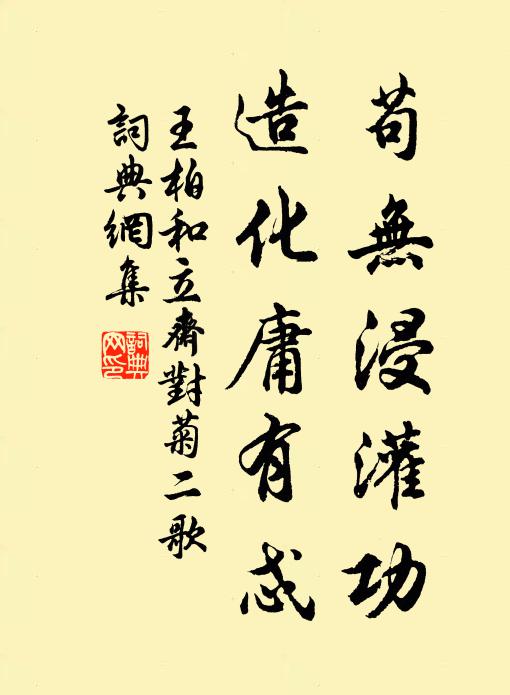 苟無浸灌功
造化庸有忒
王柏和立齋對菊二歌
詞典網集
詞典網印